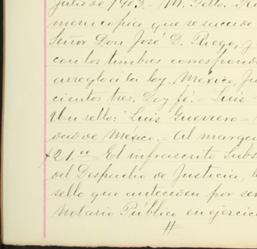 julio de 1903. M. Tello. Es
mera copia que se sacó de
Señor Don José D. Riego, y
con los timbres correspond
arreglo a la ley. Mexico, Ju
cientos tres. Doy fé. Luis
Un sello: Luis Guerrero.
de Mexico. Al margen
$21.00 El infrascrito Subs
del Despacho de Justicia,
sello que anteceden por ser
Notario Público en ejercic
#